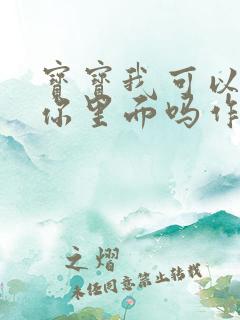 寶寶我可以
你里面吗作
之熠
未经同意禁止转载